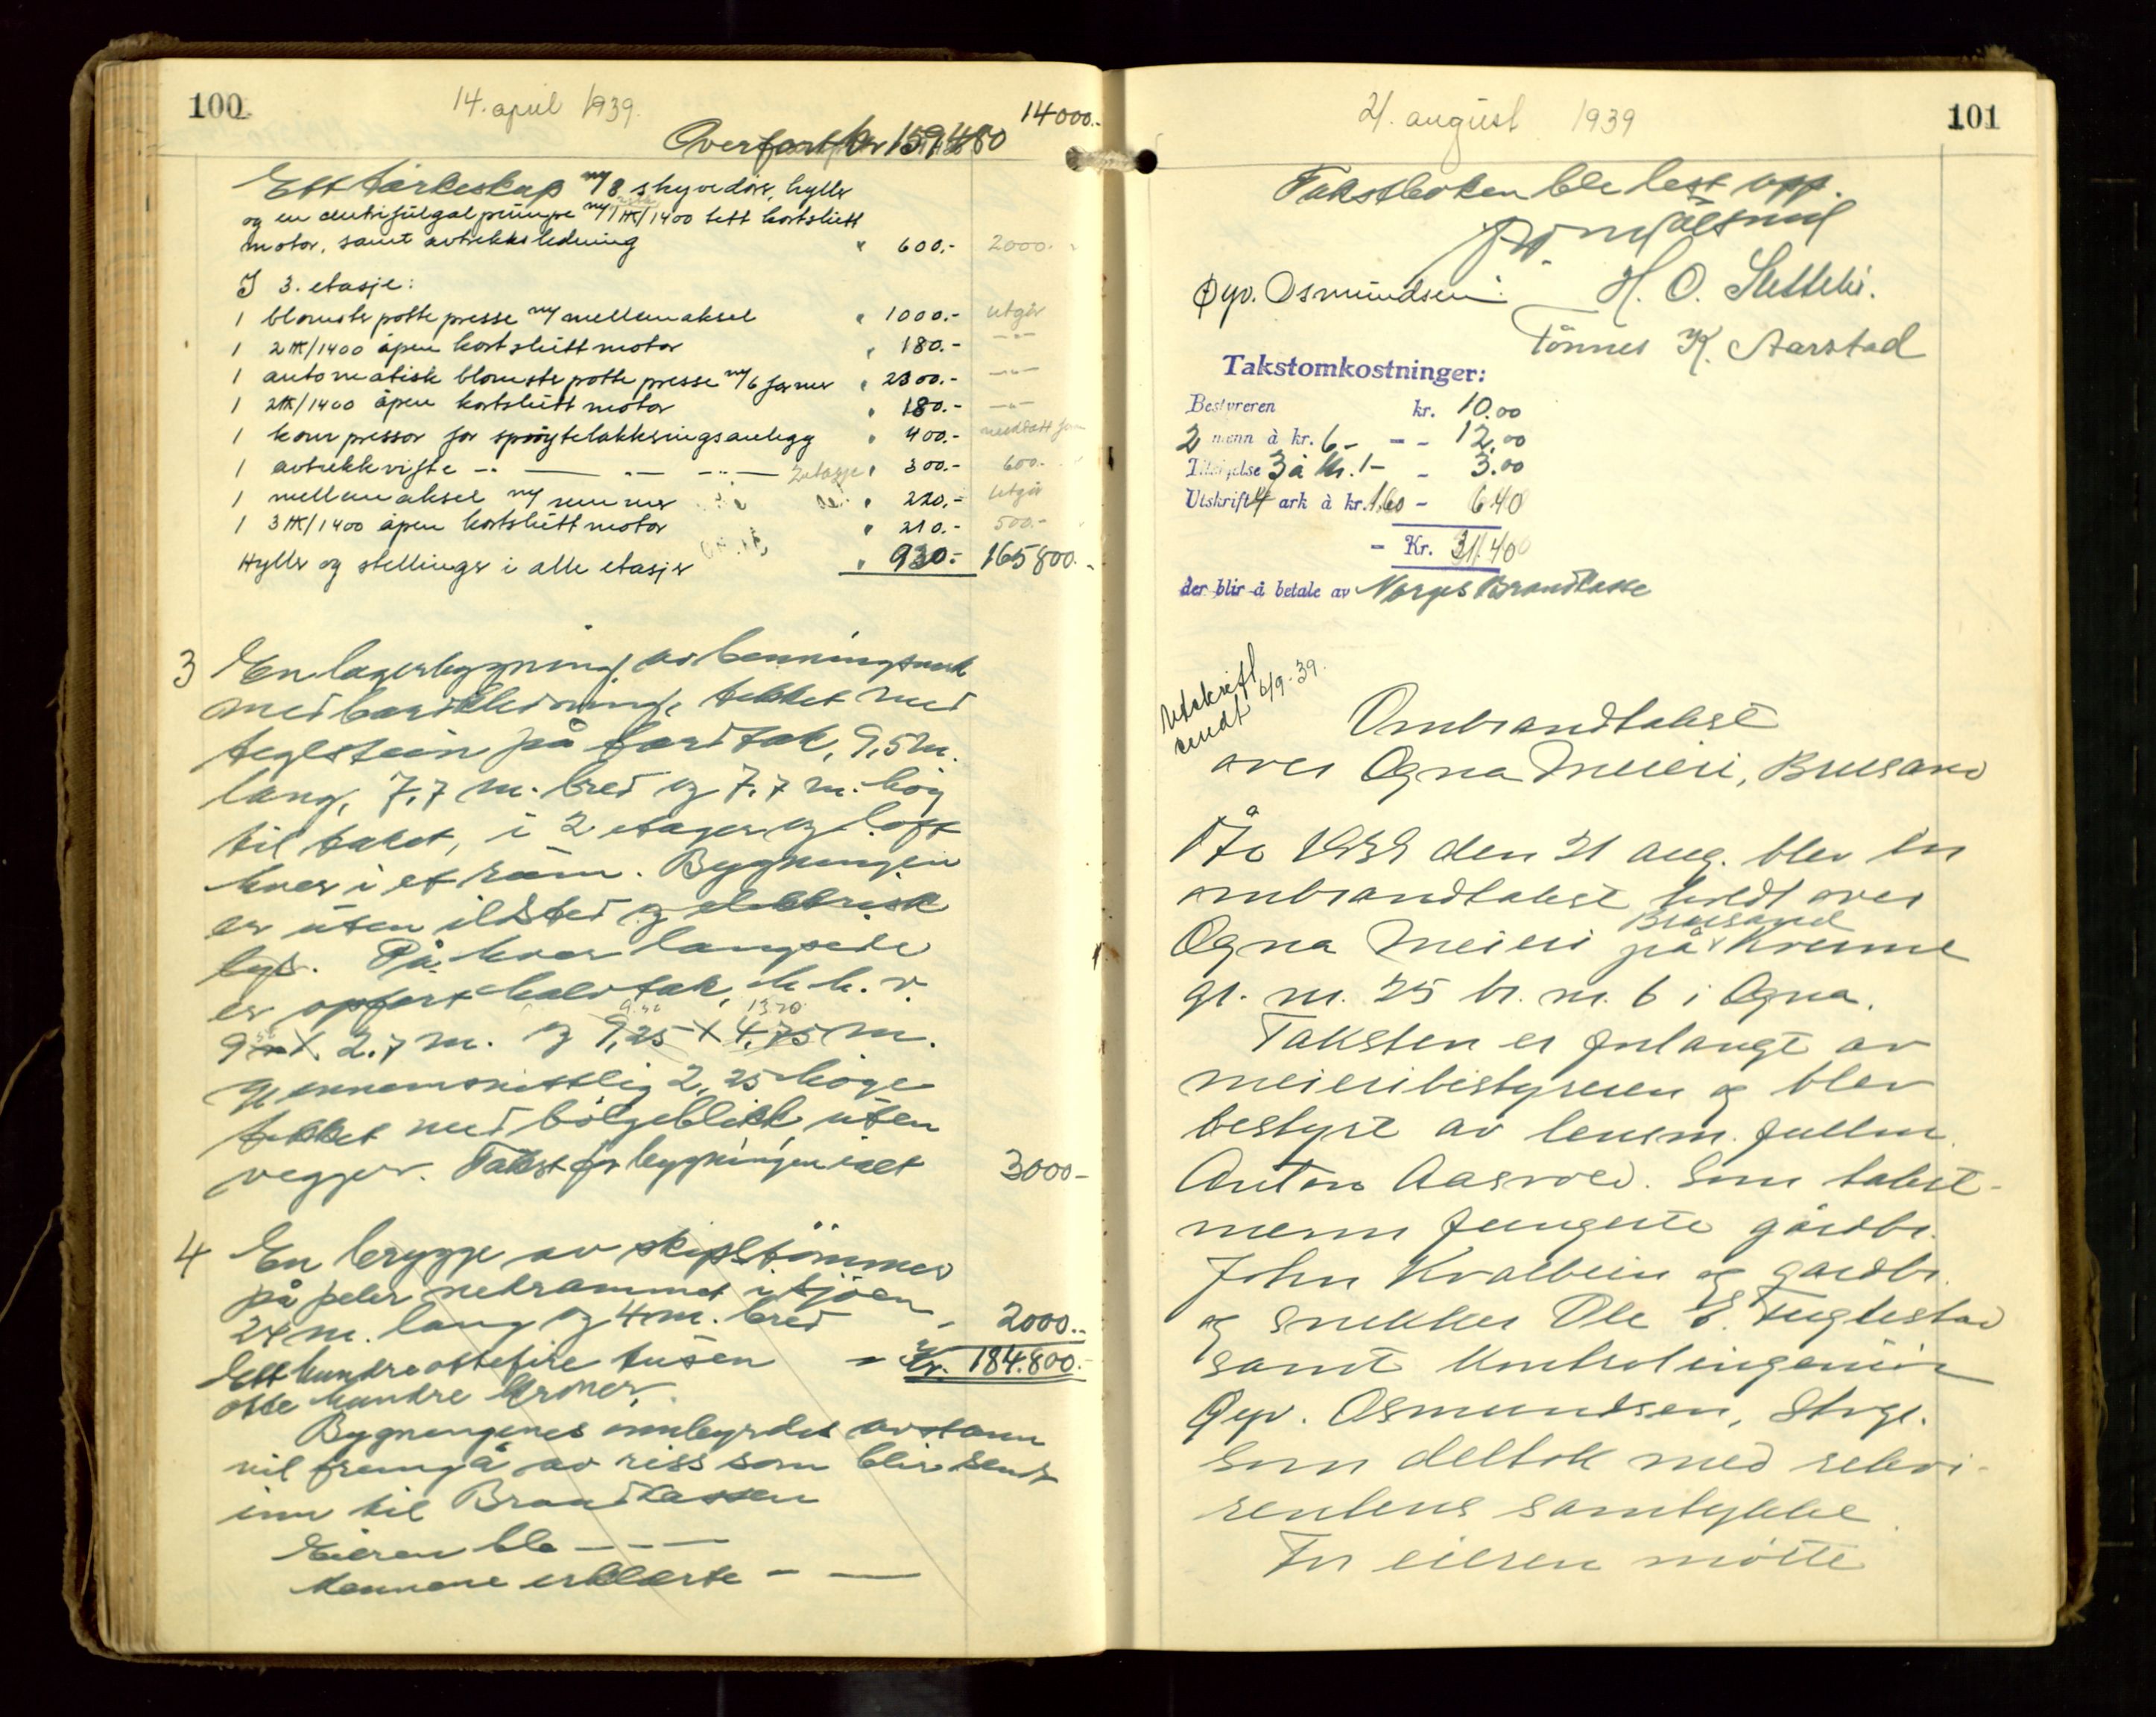 100
14. april 1939.
14000.-
Overført kr 159480
Ett tørkeskap m/ 8 skyvedører, hyller
og en centrifugalpumpe m/ 1 HK/1400 tett kortslutt
motor, samt avtrekksledning " 600.- 2000.-
I 3. etasje:
1 blomsterpotte presse m/ mellemaksel " 1000.- utgår
1 2 HK/1400 åpen kortslutt motor " 180.- —"—
1 automatisk blomsterpotte presse m/6 former " 2300.- —"—
1 2 HK/1400 åpen kortslutt motor " 180.- —"—
1 kompressor for sprøytelakkeringsanlegg " 400.-
1 avtrekkvifte -"- —"— -"- 2 etasje " 300.- 600.-
1 mellemaksel m/ remmer " 220.- utgår
1 3 HK/1400 åpen kortslutt motor " 210.- 500.-
Hyller og stellinger i alle etasjer " 930.- 165800.-
3 En lagerbygning av benningsverk
med bordkledning, tekket med
teglstein på bordtak, 9,5 m.
lang, 7,7 m. bred og 7,7 m. høg
til taket, i 2 etager og loft
hver i et rum. Bygningen
er uten ildsted og elektrisk
lys. På hver langside
er opført halvtak, h.h.v.
9 X 2.7 m. og 9,25 X 4,75 m.
gjennemsnittlig 2,25 høge
tekket med bølgeblikk, uten
vegger. Takst for bygningen ialt 3000-
4 En brygge av skipstømmer
på peler nedrammet i sjøen,
24 m. lang og 4 m. bred - 2000.-
Ett hundreottefire tusen - Kr. 184.800.-
otte hundre kroner.
Bygningenes innbyrdes avstann
vil fremgå av riss som blir sent
inn til Brandkassen
Eieren ble — — —
Mennene erklærte — —
21. august 1939
101
Takstboken ble lest opp.
Øyv. Osmundsen. H. O.
Tönnes K. Aarstad
Takstomkostninger:
Bestyreren kr. 10.00
2 menn à kr. 6.- - - 12.00
3 à kr. 1- - 3.00
Utskrift 4 ark à kr. 1.60 - 6.40
- Kr. 31.40
der blir å betale av Norges Brandkasse
Utskrift
sendt 6/9-39.
Ombrandtakst
over Ogna Meieri, Brusand
År 1939 den 21 aug. blev en
ombrandtakst holdt over
Brusand
Ogna Meieri på Kvame
gr. nr. 25 br. nr. 6 i Ogna.
Taksten er forlangt av
meieribestyreren og blev
bestyrt av lensm. fullm.
Anton Aasvold. Som takst-
menn fungerte gårdbr.
John Kvalbein og gardbr.
og snekker Ole E. Fuglestad
samt kontrolingeniør
Øyv. Osmundsen, Stvgr.
som deltok med rekvi-
rentens samtykke.
For eieren møtte